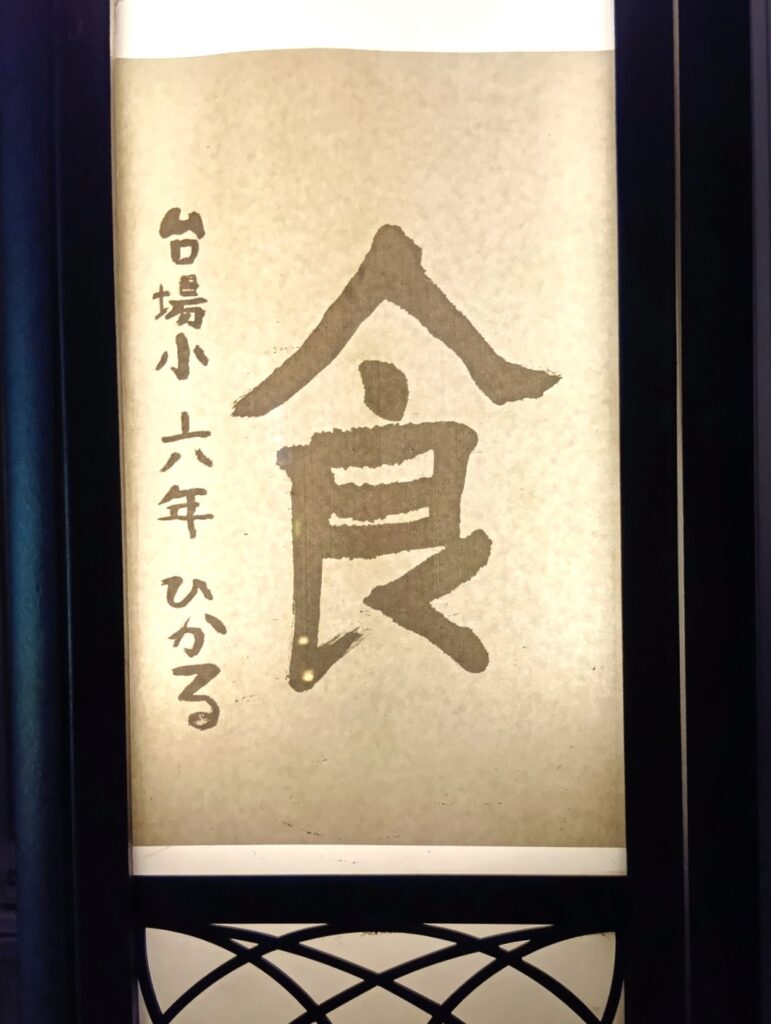 食
台場小 六年 ひかる